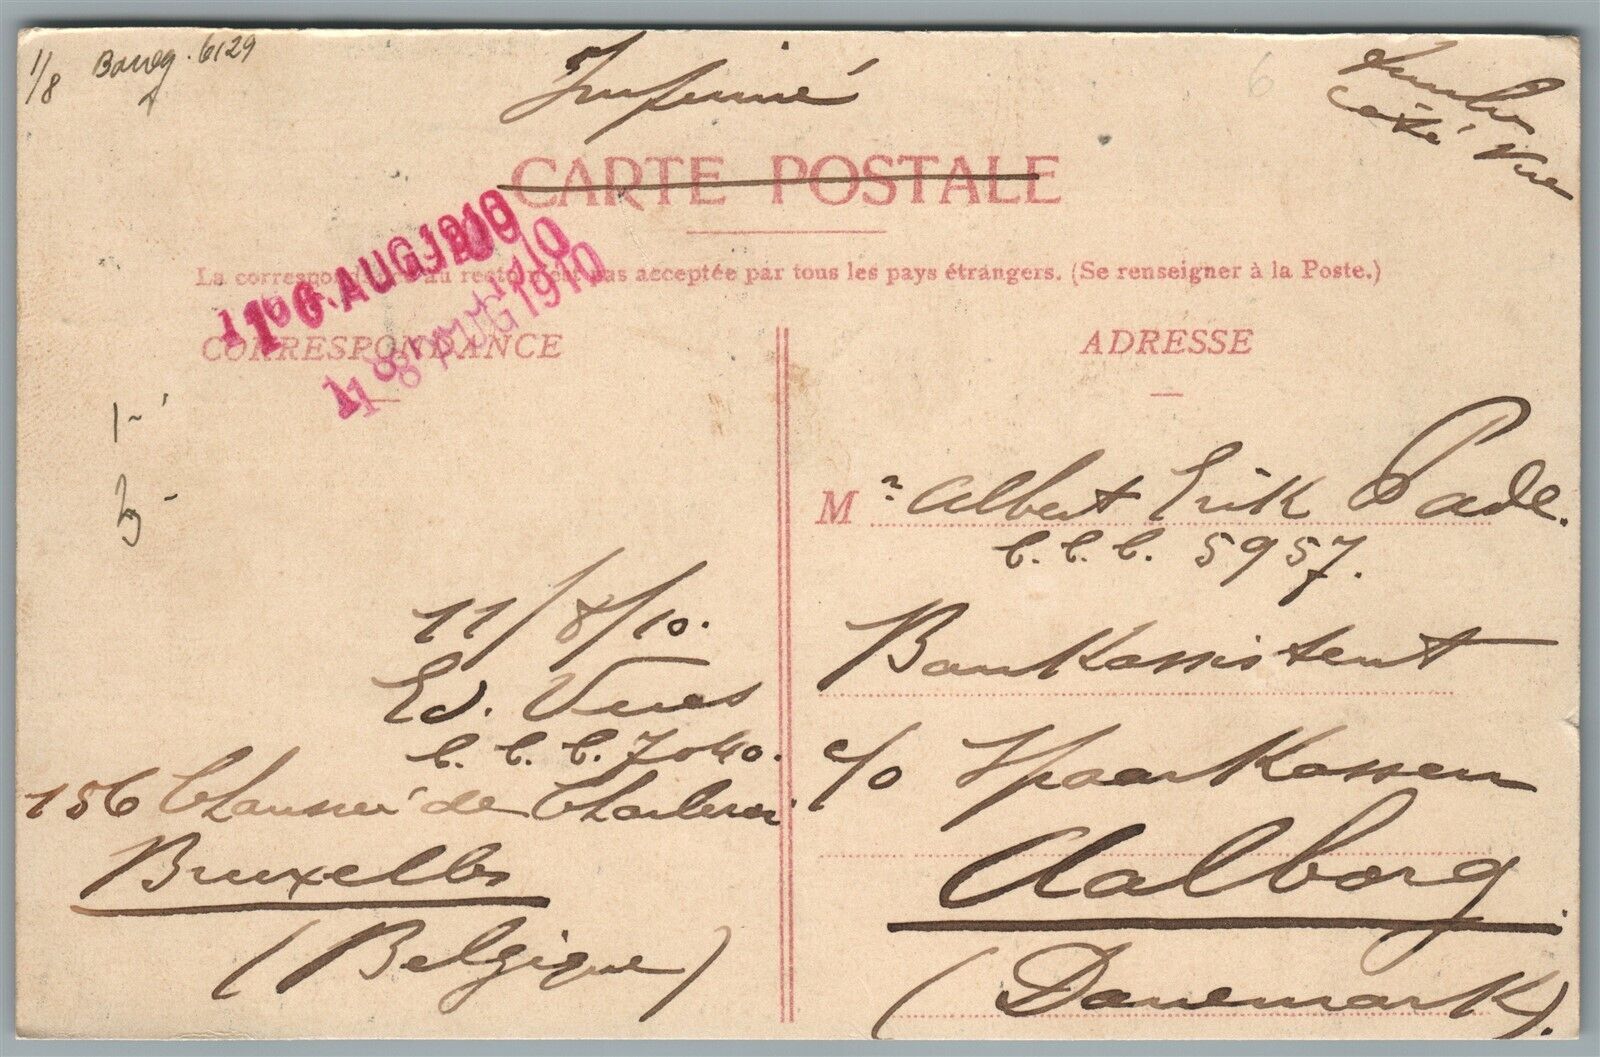 1/8
6129
Imprimé
Timbre
Côté Vue
CARTE POSTALE
La correspondance au recto n'est pas acceptée par tous les pays étrangers. (Se renseigner à la Poste.)
16 AUG 1910
18 AUG 1910
CORRESPONDANCE
11/8/10.
Ed. Vues
C. C. C. 7040.
156 Chaussée de Charleroi
Bruxelles
(Belgique)
ADRESSE
Mr. Albert Erik Pade.
C. C. C. 5957.
Bankassistent
c/o Sparkassen
Aalborg
(Danemark).